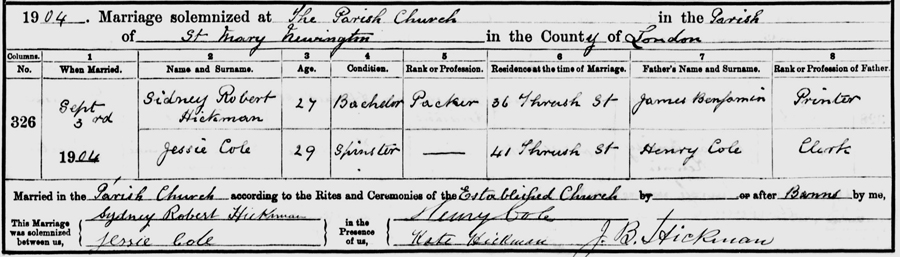 1904. Marriage solemnized at The Parish Church in the Parish
of St Mary Newington in the County of London
Columns. 1 2 3 4 5 6 7 8
No. When Married. Name and Surname. Age. Condition. Rank or Profession. Residence at the time of Marriage. Father's Name and Surname. Rank or Profession of Father.
326 Sept 3rd 1904 Sidney Robert Hickman 27 Bachelor Packer 36 Thrush St James Benjamin Printer
Jessie Cole 29 Spinster — 41 Thrush St Henry Cole Clerk
Married in the Parish Church according to the Rites and Ceremonies of the Established Church by — or after Banns by me,
This Marriage was solemnized between us, Sydney Robert Hickman in the Presence of us, Henry Cole
Jessie Cole Kate Hickman J. B. Hickman